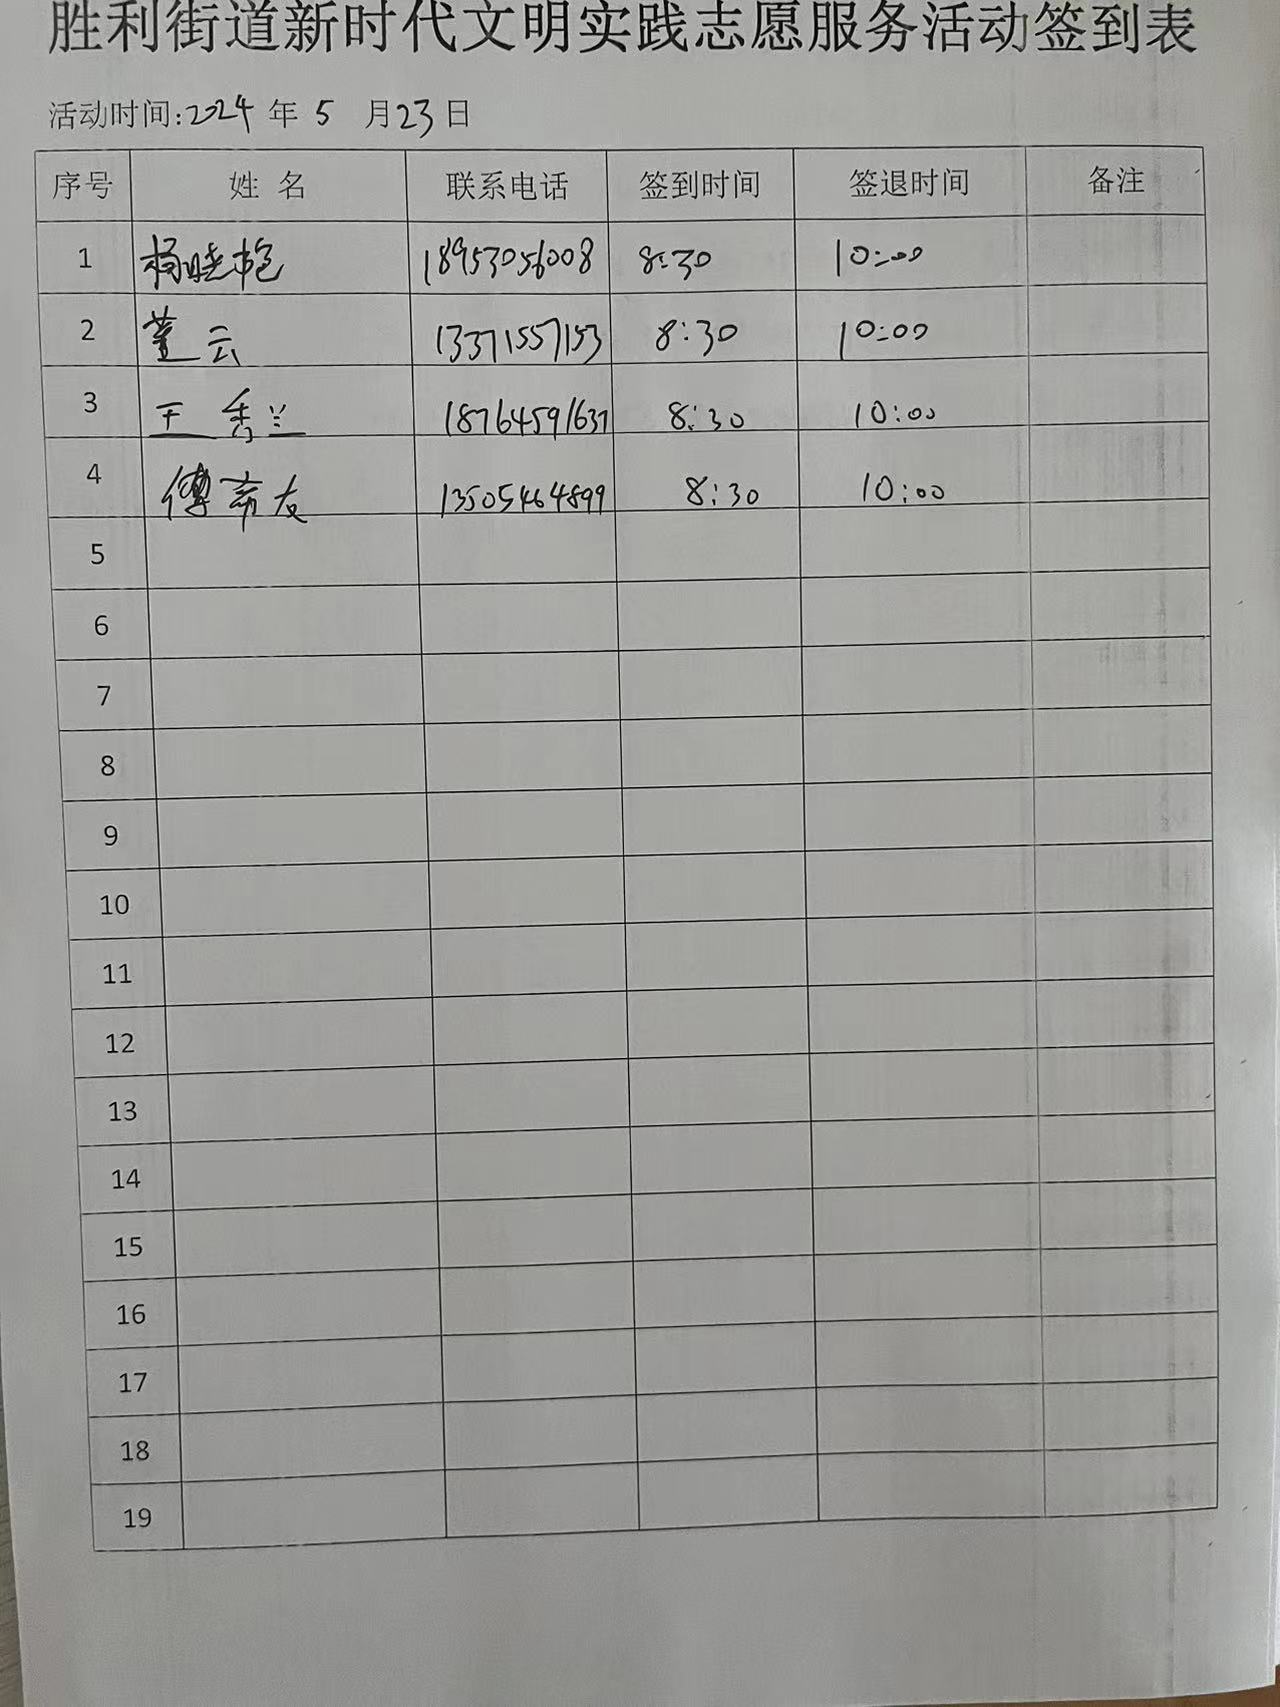 胜利街道新时代文明实践志愿服务活动签到表
活动时间:2024 年 5 月23日
序号 姓 名 联系电话 签到时间 签退时间 备注
1 杨晓艳 18953056008 8:30 10:00
2 董云 13371557153 8:30 10:00
3 王秀兰 18764591637 8:30 10:00
4 傅希友 13505464899 8:30 10:00
5
6
7
8
9
10
11
12
13
14
15
16
17
18
19